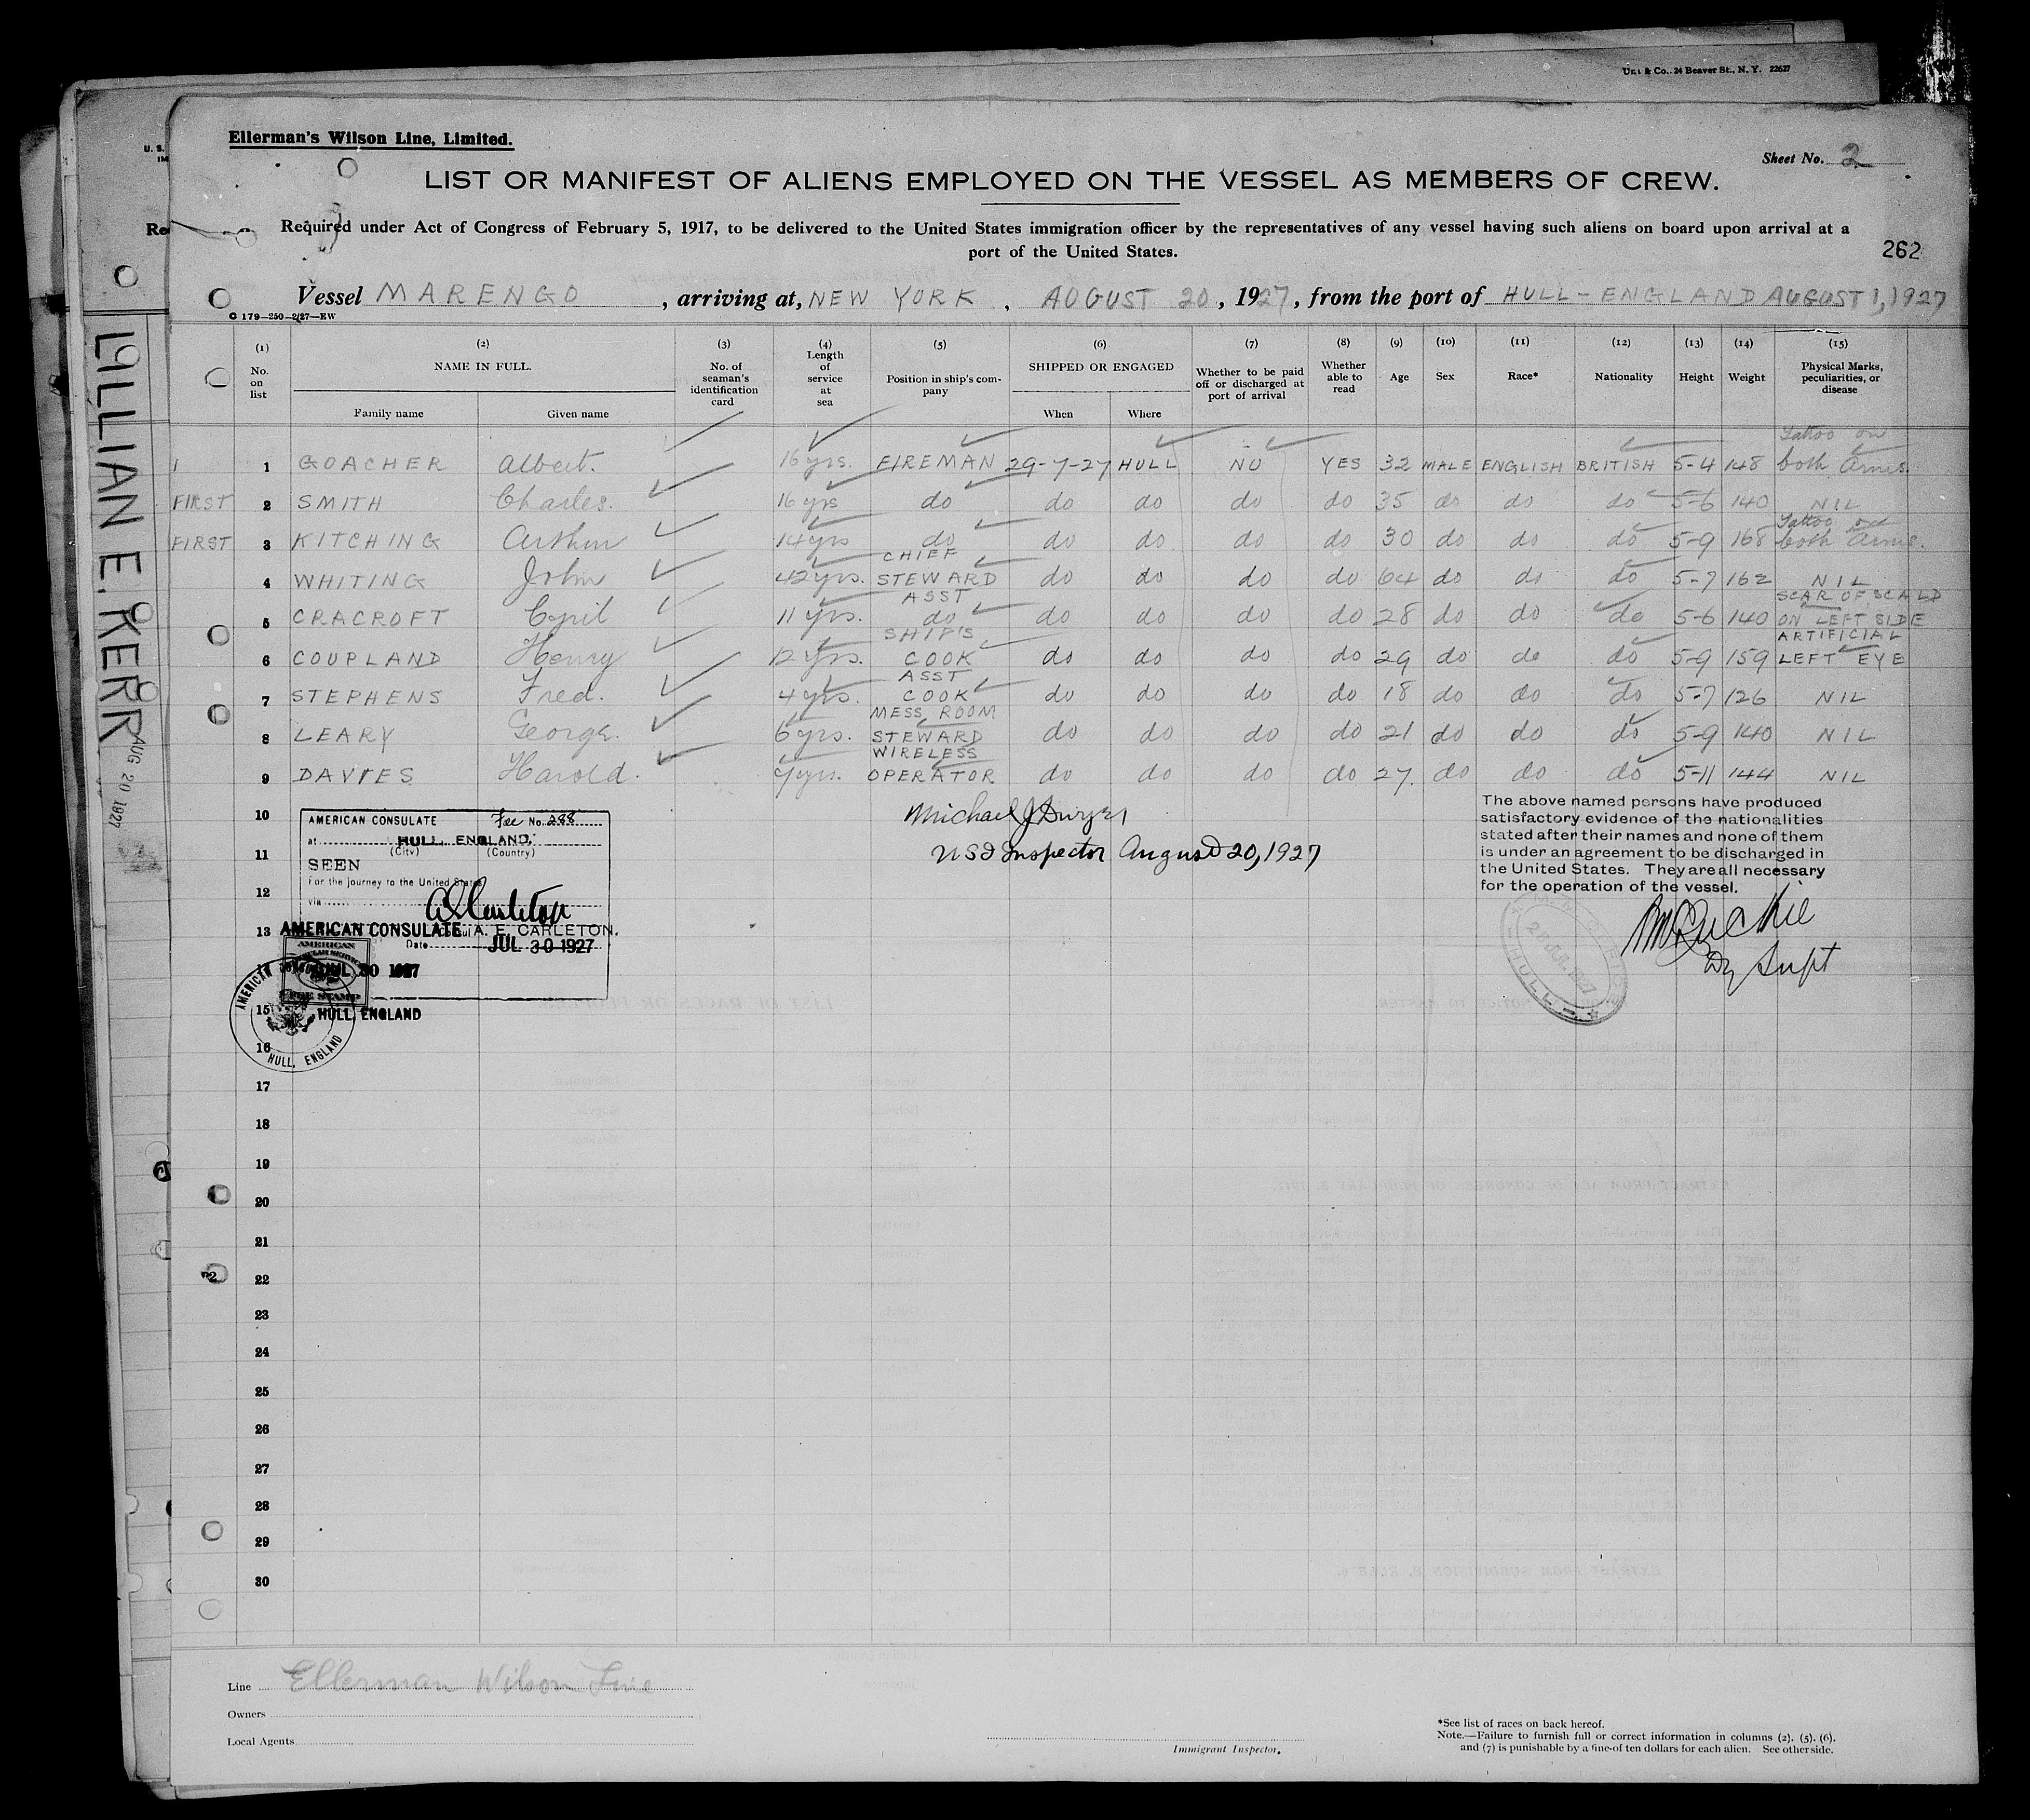 Unz & Co., 24 Beaver St., N. Y. 22627
Ellerman's Wilson Line, Limited.
Sheet No. 2
LIST OR MANIFEST OF ALIENS EMPLOYED ON THE VESSEL AS MEMBERS OF CREW.
Required under Act of Congress of February 5, 1917, to be delivered to the United States immigration officer by the representatives of any vessel having such aliens on board upon arrival at a
port of the United States.
262
Vessel MARENGO, arriving at, NEW YORK, AUGUST 20, 1927, from the port of HULL - ENGLAND AUGUST 1, 1927
C 179-250-2/27-EW
(1) (2) (3) (4) (5) (6) (7) (8) (9) (10) (11) (12) (13) (14) (15)
No. on list NAME IN FULL. Family name Given name No. of seaman's identification card Length of service at sea Position in ship's company SHIPPED OR ENGAGED When Where Whether to be paid off or discharged at port of arrival Whether able to read Age Sex Race* Nationality Height Weight Physical Marks, peculiarities, or disease
1 GOACHER Albert. 16 yrs. FIREMAN 29-7-27 HULL NO YES 32 MALE ENGLISH BRITISH 5-4 148 Tattoo on both Arms.
FIRST 2 SMITH Charles. 16 yrs do do do do do 35 do do do 5-6 140 NIL
FIRST 3 KITCHING Arthur 14 yrs do do do do do 30 do do do 5-9 168 Tattoo on both Arms.
4 WHITING John 42 yrs. CHIEF STEWARD do do do do 64 do do do 5-7 162 NIL
5 CRACROFT Cyril 11 yrs. ASST do do do do do 28 do do do 5-6 140 SCAR OF SCALD ON LEFT SIDE
6 COUPLAND Henry 12 yrs. SHIP'S COOK do do do do 29 do do do 5-9 159 ARTIFICIAL LEFT EYE
7 STEPHENS Fred. 4 yrs. ASST COOK do do do do 18 do do do 5-7 126 NIL
8 LEARY George. 6 yrs. MESS ROOM STEWARD do do do do 21 do do do 5-9 140 NIL
9 DAVIES Harold. 7 yrs. WIRELESS OPERATOR do do do do 27. do do do 5-11 144 NIL
10
11
12
13
15
16
17
18
19
20
21
22
23
24
25
26
27
28
29
30
AMERICAN CONSULATE Fee No. 288
at HULL, ENGLAND.
(City) (Country)
SEEN
For the journey to the United States
via
A. E. CARLETON.
Date JUL 30 1927
AMERICAN CONSULATE
JUL 30 1927
HULL, ENGLAND
AMERICAN
FEE STAMP
AMERICAN
HULL, ENGLAND
Michael J Dwyer
USI Inspector August 20, 1927
The above named persons have produced
satisfactory evidence of the nationalities
stated after their names and none of them
is under an agreement to be discharged in
the United States. They are all necessary
for the operation of the vessel.
Dy Supt
HULL
LILLIAN E. KERR
AUG 20 1927
Line Ellerman Wilson Line
Owners
Local Agents
Immigrant Inspector.
*See list of races on back hereof.
Note.—Failure to furnish full or correct information in columns (2). (5). (6).
and (7) is punishable by a fine of ten dollars for each alien. See other side.